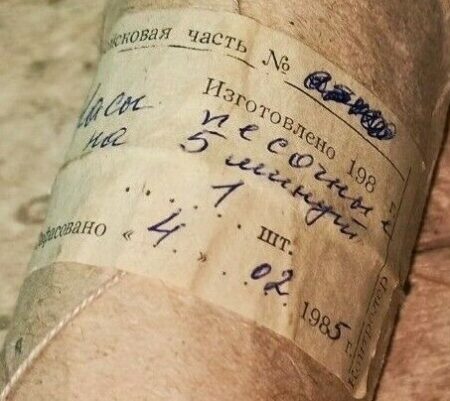 йсковая часть №
Изготовлено 198 г.
Часы песочные
на 5 минут
1 шт.
фасовано « 4 » 02 1985 г.